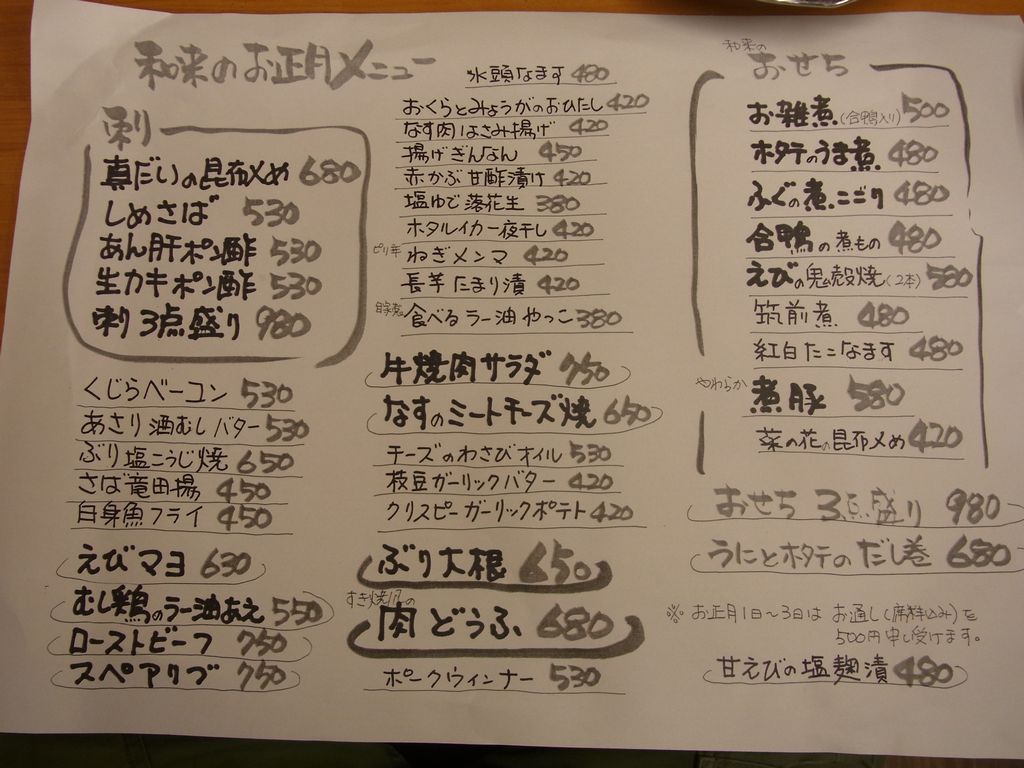 和来のお正月メニュー
刺
真だいの昆布〆め 680
しめさば 530
あん肝ポン酢 530
生カキポン酢 530
刺 3点盛り 980
くじらベーコン 530
あさり酒むしバター 530
ぶり塩こうじ焼 650
さば竜田揚 450
白身魚フライ 450
えびマヨ 630
むし鶏のラー油あえ 550
ローストビーフ 750
スペアリブ 750
氷頭なます 480
おくらとみょうがのおひたし 420
なす肉はさみ揚げ 420
揚げぎんなん 450
赤かぶ甘酢漬け 420
塩ゆで落花生 380
ホタルイカ一夜干し 420
ピリ辛 ねぎメンマ 420
長芋たまり漬 420
自家製 食べるラー油やっこ 380
牛焼肉サラダ 750
なすのミートチーズ焼 650
チーズのわさびオイル 530
枝豆ガーリックバター 420
クリスピーガーリックポテト 420
ぶり大根 650
すき焼風の
肉どうふ 680
ポークウィンナー 530
和来の
おせち
お雑煮(合鴨入り) 500
ホタテのうま煮 480
ふぐの煮こごり 480
合鴨の煮もの 480
えびの鬼殻焼(2本) 580
筑前煮 480
紅白たこなます 480
やわらか 煮豚 580
菜の花の昆布〆め 420
おせち 3点盛り 980
うにとホタテのだし巻 680
※ お正月1日〜3日は お通し(席料込み)を
500円申し受けます。
甘えびの塩麹漬 480